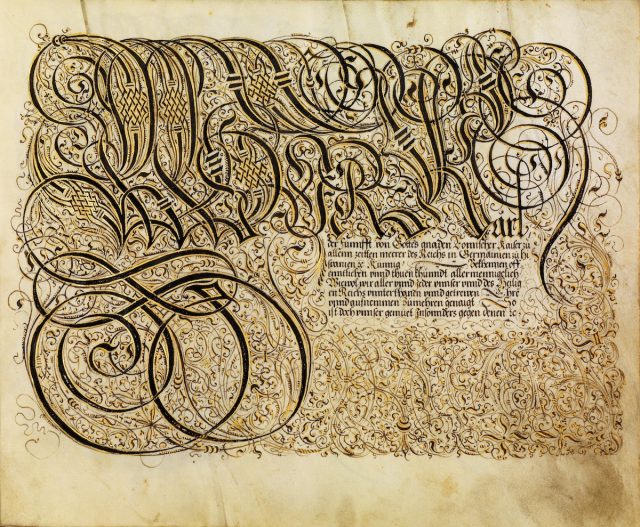 Karl
der Funfft von Gottes gnaden Romischer Kaiser zu
allenn zeitten meerer des Reichs in Germanien zu hi
spanien ꝛc Kunnig Bekennen off
enntlichen vnnd thuen khunndt allermenngclich
Wiewol wir aller vnnd Jeder vnnser vnnd des Heilig
en Reichs vnnterthanen vnnd getrewen Ehre
vnnd zumehren genaigt So
ist doch vnnser gemuet Insonnders gegen denen ꝛc